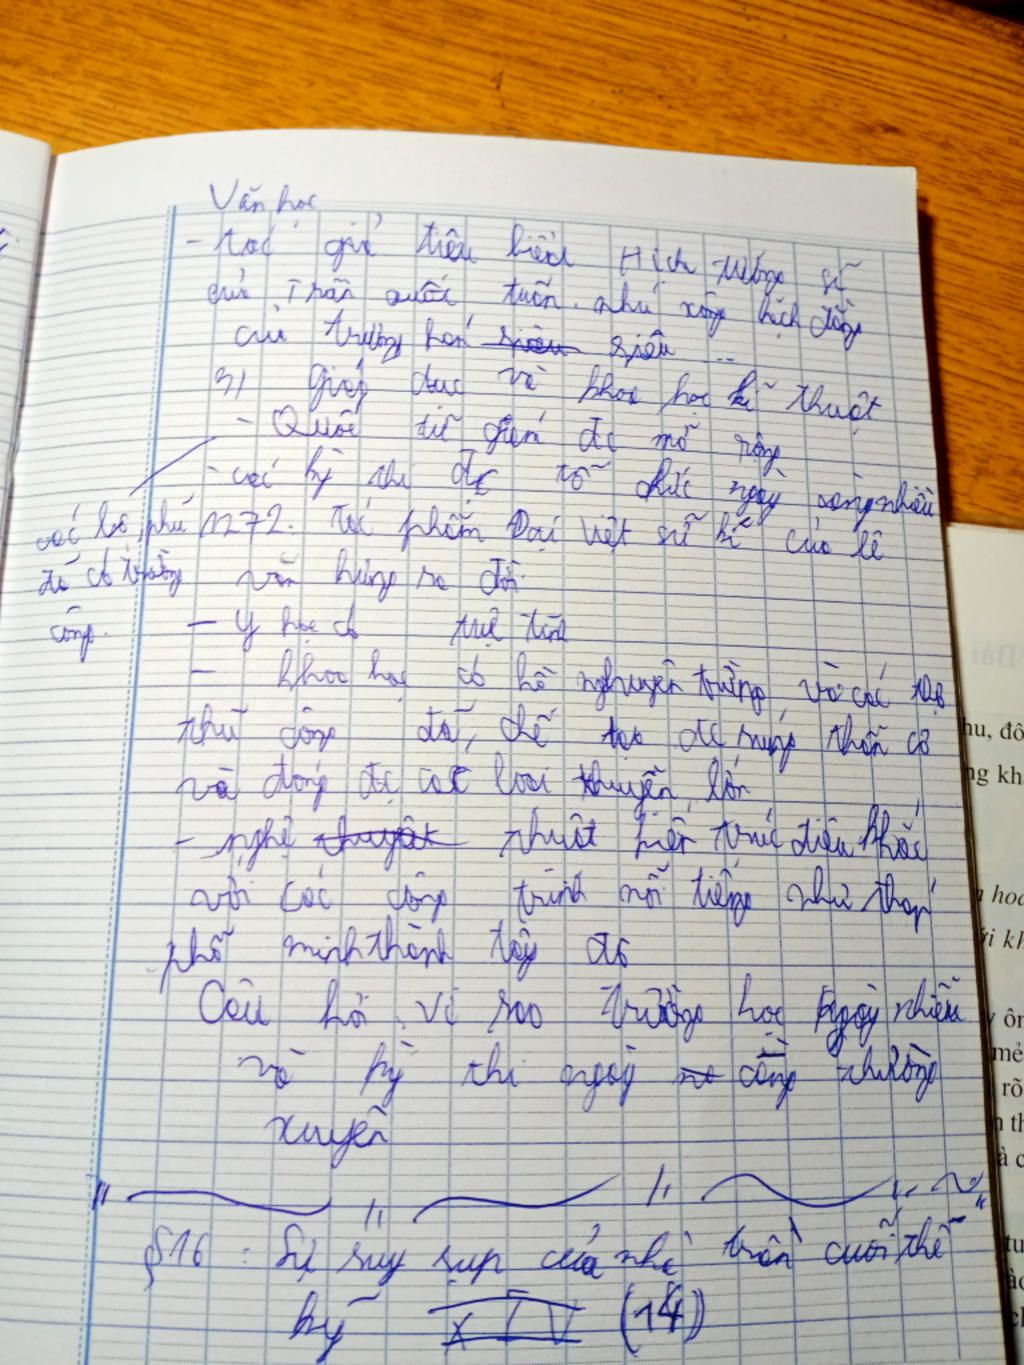 Văn học
- tác giả tiêu biểu Hịch tướng sĩ
của Trần Quốc tuấn. như xông bạch đằng
củ trương hán siêu siêu ...
3/ giáo dục và khoa học kĩ thuật
- Quốc tử gián đc mở rộng
- các kỳ thi đc tổ chức ngày càng nhiều
các lộ, phủ
đề có trường
công.
1272. Tác phẩm Đại Việt sử kí của lê
văn hưng ra đời
- y học có tuệ tĩnh
- khoa học có hồ nguyên trường và các thợ
thủ công đã, chế tạo đc súng thần cơ
và đóng đc các loại thuyền lớn
- nghệ thuyât thuật kiến trúc điêu khắc
với các công trình nổi tiếng như tháp
phổ minh thành tây đô
Câu hỏi vì sao trường học ngày nhiều
và kỳ thi ngày càng thường
xuyên
§16 : Sự suy sụp của nhà trần cuối thế
kỹ XIV (14)
hu, đô
ng kh